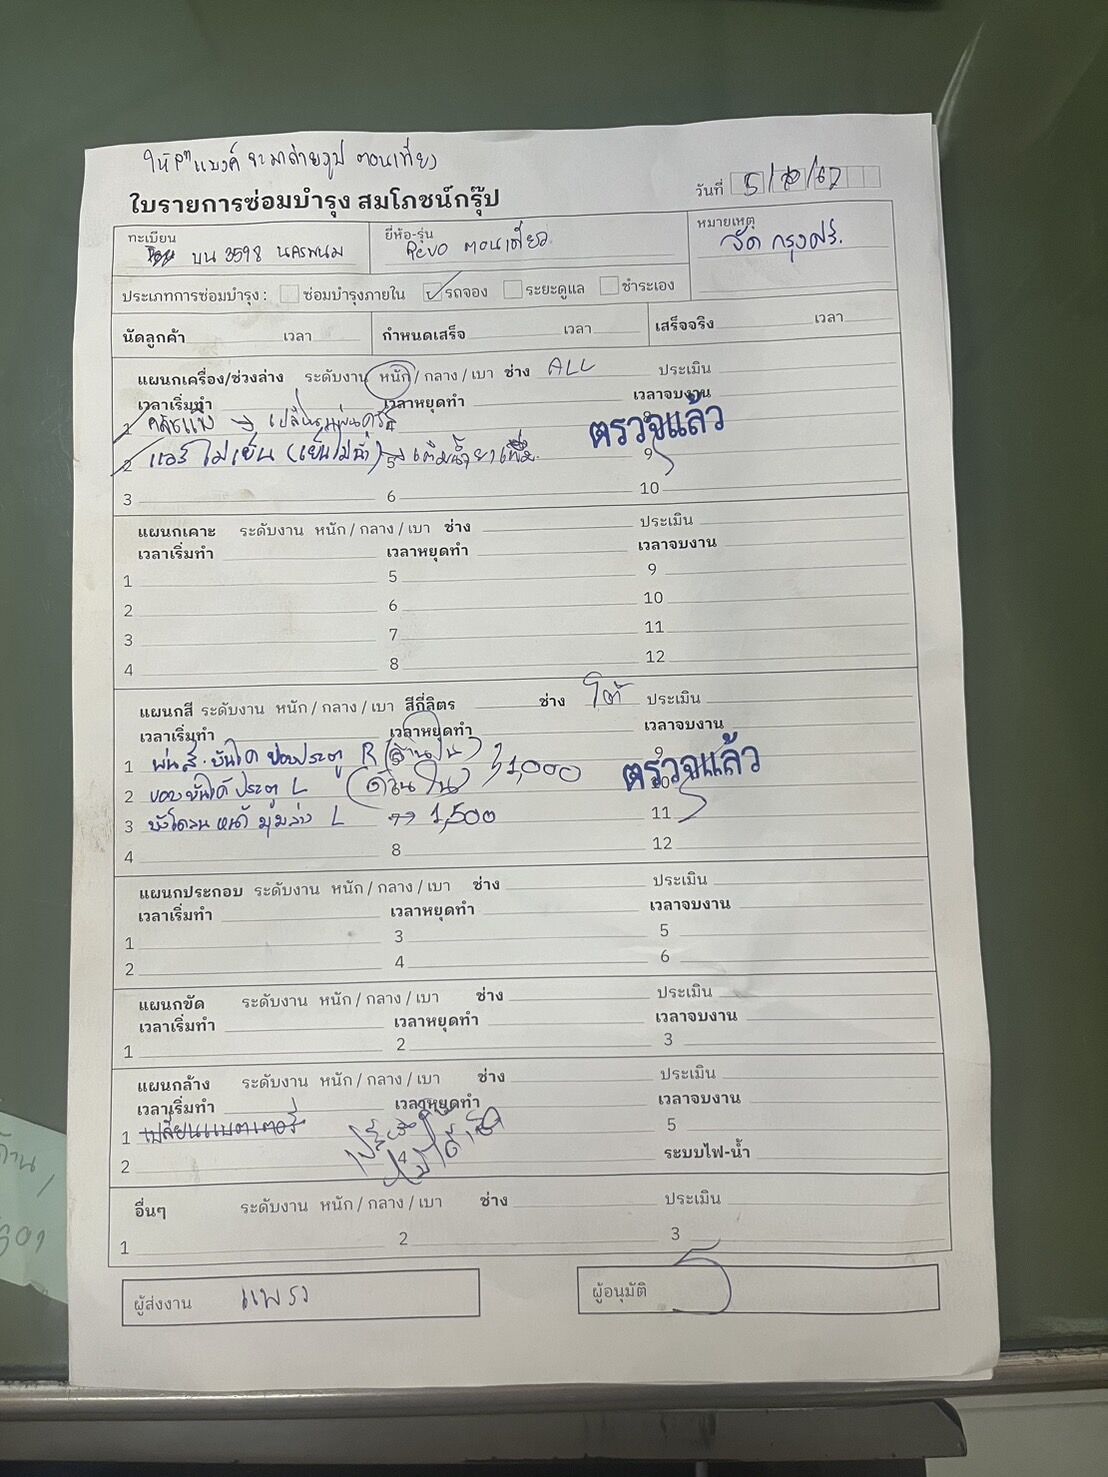 ให้ แบงค์ จะมาถ่ายรูป ตอนเที่ยง
ใบรายการซ่อมบำรุง สมโภชน์กรุ๊ป
วันที่ 5/ /67
ทะเบียน บน 3598 นครพนม
ยี่ห้อ-รุ่น Revo ตอนเดียว
หมายเหตุ จัด กรุงศรี.
ประเภทการซ่อมบำรุง : ซ่อมบำรุงภายใน รถจอง ระยะดูแล ชำระเอง
นัดลูกค้า เวลา กำหนดเสร็จ เวลา เสร็จจริง เวลา
แผนกเครื่อง/ช่วงล่าง ระดับงาน หนัก / กลาง / เบา ช่าง ALL ประเมิน
เวลาเริ่มทำ เวลาหยุดทำ เวลาจบงาน
1 คลัชแข็ง → เปลี่ยน
ตรวจแล้ว
2 แอร์ ไม่เย็น (เย็นไม่ฉ่ำ) 5 → เติมน้ำยา 9
3 6 10
แผนกเคาะ ระดับงาน หนัก / กลาง / เบา ช่าง ประเมิน
เวลาเริ่มทำ เวลาหยุดทำ เวลาจบงาน
1 5 9
2 6 10
3 7 11
4 8 12
แผนกสี ระดับงาน หนัก / กลาง / เบา สีกี่ลิตร ช่าง โต้ ประเมิน
เวลาเริ่มทำ เวลาหยุดทำ เวลาจบงาน
1 พ่นสี. บันได ขอบประตู R (ด้านใน) 9
2 ขอบบันได ประตู L (ด้านใน) 1,000 ตรวจแล้ว 10
3 บังโคลน หน้า มุมล่าง L → 1,500 11
4 8 12
แผนกประกอบ ระดับงาน หนัก / กลาง / เบา ช่าง ประเมิน
เวลาเริ่มทำ เวลาหยุดทำ เวลาจบงาน
1 3 5
2 4 6
แผนกขัด ระดับงาน หนัก / กลาง / เบา ช่าง ประเมิน
เวลาเริ่มทำ เวลาหยุดทำ เวลาจบงาน
1 2 3
แผนกล้าง ระดับงาน หนัก / กลาง / เบา ช่าง ประเมิน
เวลาเริ่มทำ เวลาหยุดทำ เวลาจบงาน
1 เปลี่ยนแบตเตอรี่ 5
2 4 ระบบไฟ-น้ำ
อื่นๆ ระดับงาน หนัก / กลาง / เบา ช่าง ประเมิน
1 2 3
ผู้ส่งงาน แพรว
ผู้อนุมัติ